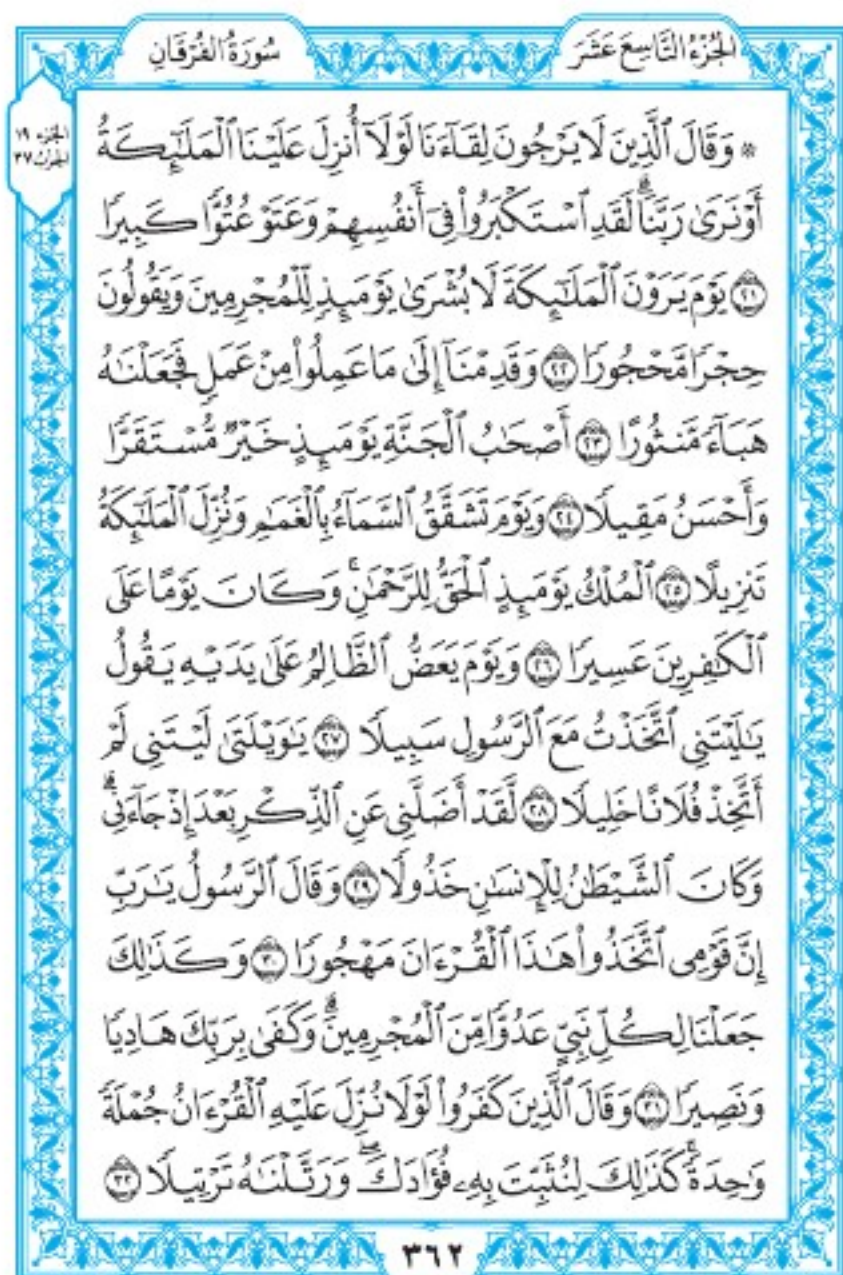 الجُزْءُ التَّاسِعَ عَشَرَ
سُورَةُ الفُرْقَانِ
الجزء ١٩
الحزب ٣٧
۞ وَقَالَ ٱلَّذِينَ لَا يَرْجُونَ لِقَآءَنَا لَوْلَآ أُنزِلَ عَلَيْنَا ٱلْمَلَـٰٓئِكَةُ
أَوْ نَرَىٰ رَبَّنَا ۗ لَقَدِ ٱسْتَكْبَرُوا۟ فِىٓ أَنفُسِهِمْ وَعَتَوْ عُتُوًّا كَبِيرًا
٢١ يَوْمَ يَرَوْنَ ٱلْمَلَـٰٓئِكَةَ لَا بُشْرَىٰ يَوْمَئِذٍ لِّلْمُجْرِمِينَ وَيَقُولُونَ
حِجْرًا مَّحْجُورًا ٢٢ وَقَدِمْنَآ إِلَىٰ مَا عَمِلُوا۟ مِنْ عَمَلٍ فَجَعَلْنَـٰهُ
هَبَآءً مَّنثُورًا ٢٣ أَصْحَـٰبُ ٱلْجَنَّةِ يَوْمَئِذٍ خَيْرٌ مُّسْتَقَرًّا
وَأَحْسَنُ مَقِيلًا ٢٤ وَيَوْمَ تَشَقَّقُ ٱلسَّمَآءُ بِٱلْغَمَـٰمِ وَنُزِّلَ ٱلْمَلَـٰٓئِكَةُ
تَنزِيلًا ٢٥ ٱلْمُلْكُ يَوْمَئِذٍ ٱلْحَقُّ لِلرَّحْمَـٰنِ ۚ وَكَانَ يَوْمًا عَلَى
ٱلْكَـٰفِرِينَ عَسِيرًا ٢٦ وَيَوْمَ يَعَضُّ ٱلظَّالِمُ عَلَىٰ يَدَيْهِ يَقُولُ
يَـٰلَيْتَنِى ٱتَّخَذْتُ مَعَ ٱلرَّسُولِ سَبِيلًا ٢٧ يَـٰوَيْلَتَىٰ لَيْتَنِى لَمْ
أَتَّخِذْ فُلَانًا خَلِيلًا ٢٨ لَّقَدْ أَضَلَّنِى عَنِ ٱلذِّكْرِ بَعْدَ إِذْ جَآءَنِى ۗ
وَكَانَ ٱلشَّيْطَـٰنُ لِلْإِنسَـٰنِ خَذُولًا ٢٩ وَقَالَ ٱلرَّسُولُ يَـٰرَبِّ
إِنَّ قَوْمِى ٱتَّخَذُوا۟ هَـٰذَا ٱلْقُرْءَانَ مَهْجُورًا ٣٠ وَكَذَٰلِكَ
جَعَلْنَا لِكُلِّ نَبِىٍّ عَدُوًّا مِّنَ ٱلْمُجْرِمِينَ ۗ وَكَفَىٰ بِرَبِّكَ هَادِيًا
وَنَصِيرًا ٣١ وَقَالَ ٱلَّذِينَ كَفَرُوا۟ لَوْلَا نُزِّلَ عَلَيْهِ ٱلْقُرْءَانُ جُمْلَةً
وَٰحِدَةً ۚ كَذَٰلِكَ لِنُثَبِّتَ بِهِۦ فُؤَادَكَ ۖ وَرَتَّلْنَـٰهُ تَرْتِيلًا ٣٢
٣٦٢